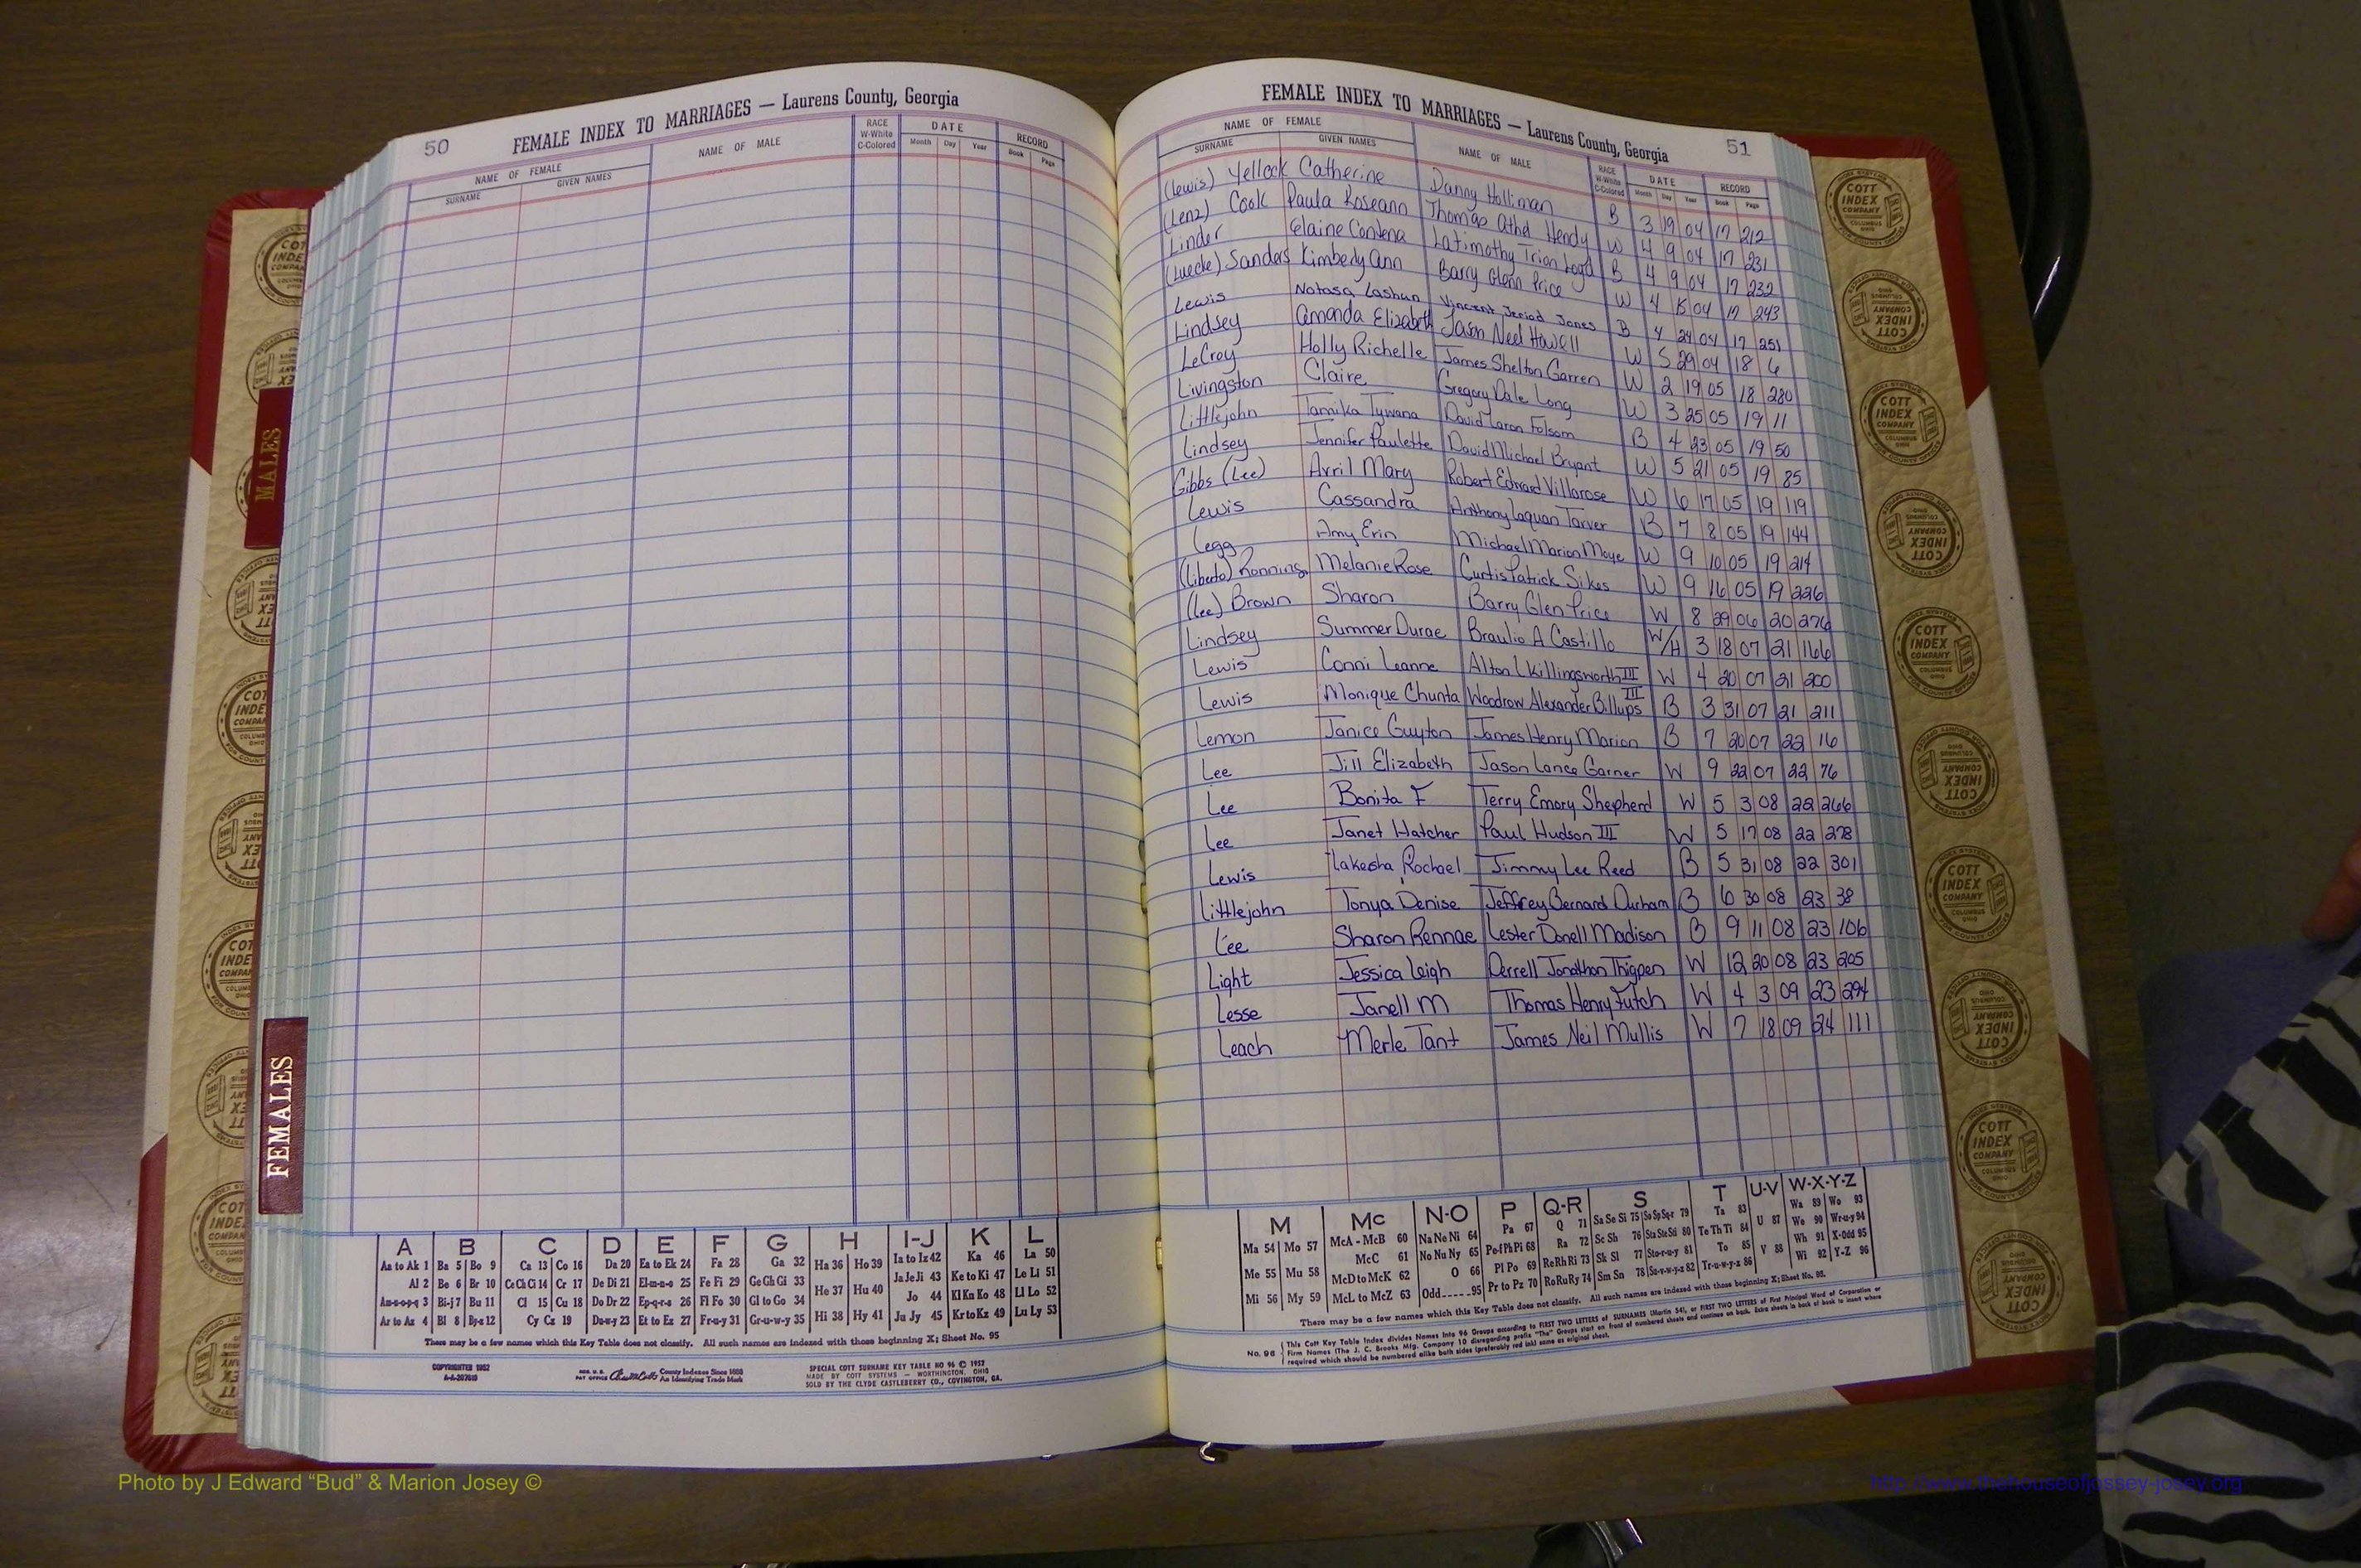 50 FEMALE INDEX TO MARRIAGES — Laurens County, Georgia
NAME OF FEMALE NAME OF MALE RACE W-White C-Colored DATE RECORD
SURNAME GIVEN NAMES Month Day Year Book Page
A B C D E F G H I-J K L
Aa to Ak 1 Ba 5 Bo 9 Ca 13 Co 16 Da 20 Ea to Ek 24 Fa 28 Ga 32 Ha 36 Ho 39 Ia to Iz 42 Ka 46 La 50
Al 2 Be 6 Br 10 Ce Ch Ci 14 Cr 17 De Di 21 El-m-n-o 25 Fe Fi 29 Ge Gh Gi 33 He 37 Hu 40 Ja Je Ji 43 Ke to Ki 47 Le Li 51
Am-n-o-p-q 3 Bi-j 7 Bu 11 Cl 15 Cu 18 Do Dr 22 Ep-q-r-s 26 Fl Fo 30 Gl to Go 34 Jo 44 Kl Kn Ko 48 Ll Lo 52
Ar to Az 4 Bl 8 By-z 12 Cy Cz 19 Du-w-y 23 Et to Ez 27 Fr-u-y 31 Gr-u-w-y 35 Hi 38 Hy 41 Ju Jy 45 Kr to Kz 49 Lu Ly 53
There may be a few names which this Key Table does not classify. All such names are indexed with those beginning X; Sheet No. 95
COPYRIGHTED 1952
REG. U.S. PAT OFFICE County Indexes Since 1888 An Identifying Trade Mark
SPECIAL COTT SURNAME KEY TABLE NO 96 © 1952
MADE BY COTT SYSTEMS — WORTHINGTON, OHIO
SOLD BY THE CLYDE CASTLEBERRY CO., COVINGTON, GA.
FEMALE INDEX TO MARRIAGES — Laurens County, Georgia 51
NAME OF FEMALE NAME OF MALE RACE W-White C-Colored DATE RECORD
SURNAME GIVEN NAMES Month Day Year Book Page
(Lewis) Yellock Catherine Danny Holliman B 3 19 04 17 212
(Lenz) Cook Paula Roseann Thomas Athel Hendy W 4 9 04 17 231
Linder Elaine Contena Latimothy Trion Loyd B 4 9 04 17 232
(Luecke) Sanders Kimberly Ann Barry Glenn Price W 4 15 04 17 243
Lewis Natasa Lashun Vincent Jeriod Jones B 4 24 04 17 251
Lindsey Amanda Elizabeth Jason Neel Howell W 5 29 04 18 6
LeCroy Holly Richelle James Shelton Garren W 2 19 05 18 280
Livingston Claire Gregory Dale Long W 3 25 05 19 11
Littlejohn Tamika Tywana David Laron Folsom B 4 23 05 19 50
Lindsey Jennifer Paulette David Michael Bryant W 5 21 05 19 85
Gibbs (Lee) Avril Mary Robert Edward Villarose W 6 17 05 19 119
Lewis Cassandra Anthony Laquan Tarver B 7 8 05 19 144
Legg Amy Erin Michael Marion Moye W 9 10 05 19 214
(Liberto) Ronning Melanie Rose Curtis Patrick Sikes W 9 16 05 19 226
(Lee) Brown Sharon Barry Glen Price W 8 29 06 20 276
Lindsey Summer Durae Braulio A Castillo W/H 3 18 07 21 166
Lewis Conni Leanne Alton L Killingsworth III W 4 20 07 21 200
Lewis Monique Chunta Woodrow Alexander Billups III B 3 31 07 21 211
Lemon Janice Guyton James Henry Marion B 7 20 07 22 16
Lee Jill Elizabeth Jason Lance Garner W 9 22 07 22 76
Lee Bonita F Terry Emory Shepherd W 5 3 08 22 266
Lee Janet Hatcher Paul Hudson III W 5 17 08 22 278
Lewis Lakesha Rochael Jimmy Lee Reed B 5 31 08 22 301
Littlejohn Tonya Denise Jeffrey Bernard Durham B 6 30 08 23 38
Lee Sharon Rennae Lester Donell Madison B 9 11 08 23 106
Light Jessica Leigh Derrell Jonathon Thigpen W 12 20 08 23 205
Lesse Janell M Thomas Henry Futch W 4 3 09 23 294
Leach Merle Tant James Neil Mullis W 7 18 09 24 111
M Mc N-O P Q-R S T U-V W-X-Y-Z
Ma 54 Mo 57 McA - McB 60 Na Ne Ni 64 Pa 67 Q 71 Sa Se Si 75 So Sp Sq-r 79 Ta 83 U 87 Wa 89 Wo 93
Me 55 Mu 58 McC 61 No Nu Ny 65 Pe-f Ph Pi 68 Ra 72 Sc Sh 76 Sta Ste Sti 80 Te Th Ti 84 We 90 Wr-u-y 94
McD to McK 62 O 66 Pl Po 69 Re Rh Ri 73 Sk Sl 77 Sto-r-u-y 81 To 85 V 88 Wh 91 X-Odd 95
Mi 56 My 59 McL to McZ 63 Odd-----95 Pr to Pz 70 Ro Ru Ry 74 Sm Sn 78 Su-v-w-y-z 82 Tr-u-w-y-z 86 Wi 92 Y-Z 96
There may be a few names which this Key Table does not classify. All such names are indexed with those beginning X; Sheet No. 95.
No. 96 This Cott Key Table Index divides Names into 96 Groups according to FIRST TWO LETTERS of SURNAMES (Martin 54), or FIRST TWO LETTERS of First Principal Word of Corporation or
Firm Names (The J. C. Brooks Mfg. Company 10 disregarding prefix "The" Groups start on front of numbered sheets and continue on back. Extra sheets in back of book to insert where
required which should be numbered alike both sides (preferably red ink) same as original sheet.
MALES
FEMALES
COTT INDEX COMPANY COLUMBUS OHIO
INDEX SYSTEMS FOR COUNTY OFFICES
Photo by J Edward “Bud” & Marion Josey ©
http://www.thehouseofjossey-josey.org